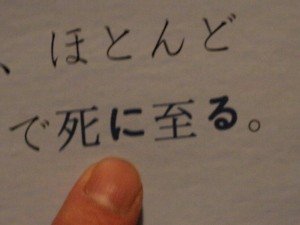 、ほとんど
で死に至る。